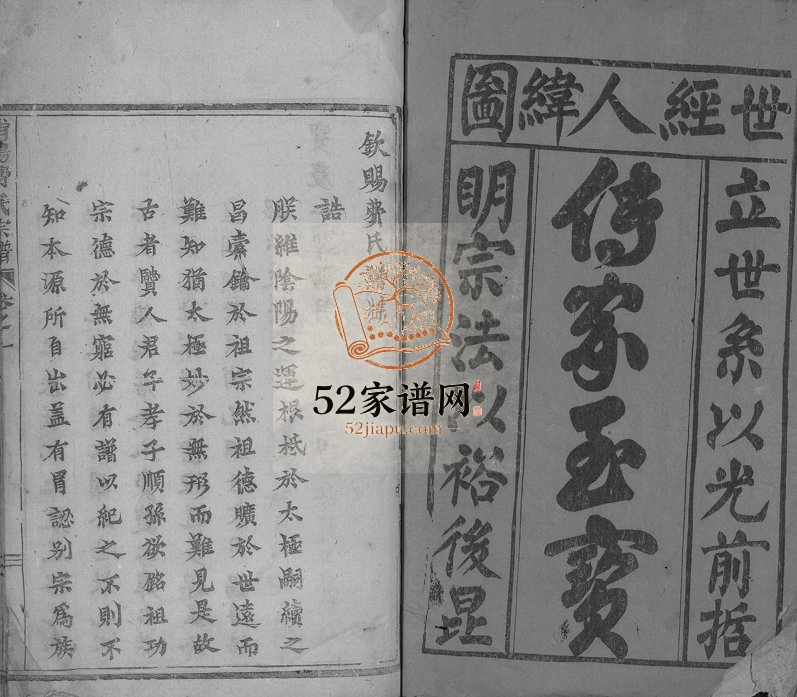 世經人緯圖
立世系以光前哲
傳家至寳
明宗法以裕後昆
欽賜費氏
誥
朕維陰陽之運根柢於太極嗣續之
昌橐鑰於祖宗然祖德曠於世遠而
難知猶太極妙於無形而難見是故
古者賢人君子孝子順孫欲銘祖功
宗德於無窮必有譜以紀之不則不
知本源所自出盖有冐認别宗爲族
費氏宗譜
52家谱网
52jiapu.com